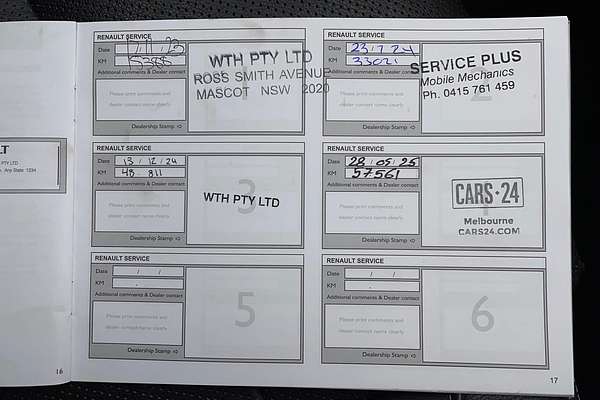 LT
PTY LTD
Any State 1234
16
RENAULT SERVICE
Date 17/11/23
KM 15388
Additional comments & Dealer contact
Please print comments and
dealer contact name clearly
Dealership Stamp
WTH PTY LTD
ROSS SMITH AVENUE
MASCOT NSW 2020
RENAULT SERVICE
Date 23/7/24
KM 33021
Additional comments & Dealer contact
Please print comments and
dealer contact name clearly
Dealership Stamp
2
SERVICE PLUS
Mobile Mechanics
Ph. 0415 761 459
RENAULT SERVICE
Date 13/12/24
KM 48 811
Additional comments & Dealer contact
Please print comments and
dealer contact name clearly
Dealership Stamp
3
WTH PTY LTD
RENAULT SERVICE
Date 28/05/25
KM 57561
Additional comments & Dealer contact
Please print comments and
dealer contact name clearly
Dealership Stamp
4
CARS·24
Melbourne
CARS24.COM
RENAULT SERVICE
Date / /
KM .
Additional comments & Dealer contact
Please print comments and
dealer contact name clearly
Dealership Stamp
5
RENAULT SERVICE
Date / /
KM .
Additional comments & Dealer contact
Please print comments and
dealer contact name clearly
Dealership Stamp
6
17